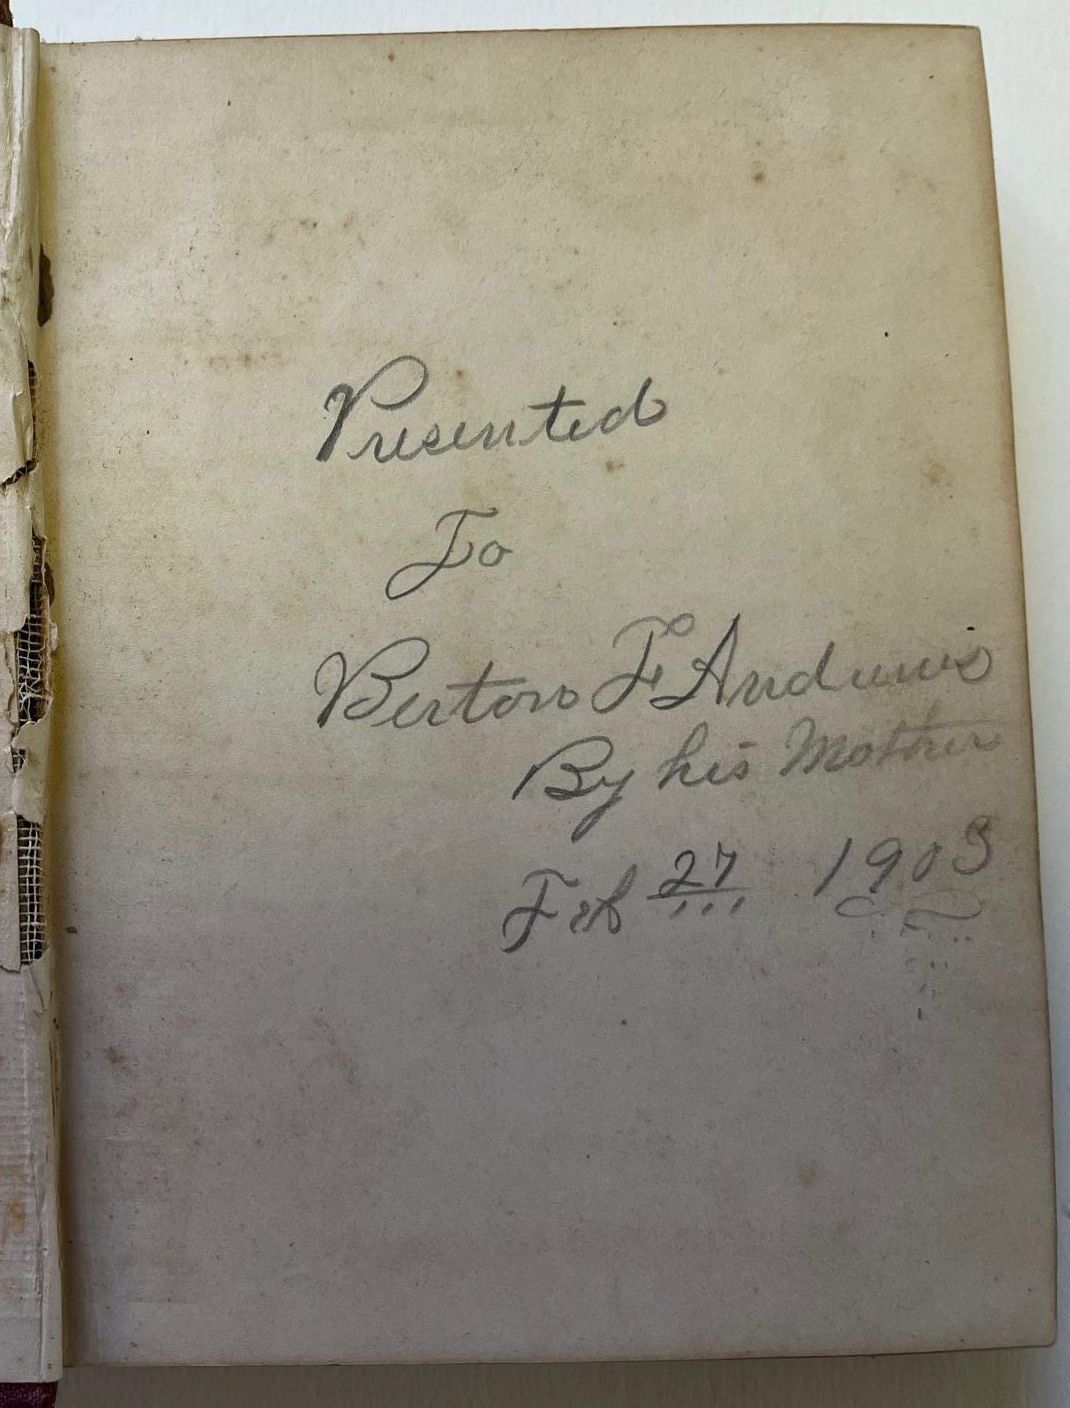 Presented
To
Berton F Andrews
By his Mother
Feb 27 1903